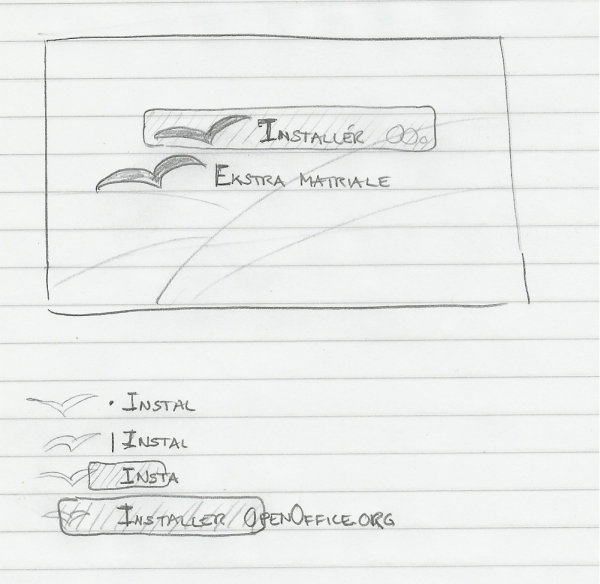 Installér OOo
Ekstra matriale
• Instal
| Instal
Insta
Installer OpenOffice.org